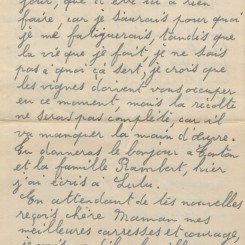 jour, que d'être ici à rien
faire, car je saurais pour quoi
je me fatiguerais, tandis que
la vie que je fait, je ne sais
pas à quoi çà sert, je crois que
les vignes doivent vous occuper
en ce moment, mais la récolte
ne serais pas complété, car il
va manquer la main d'œuvre.
Tu donneras le bonjour à Gaston
et la famille Rambert, hier
j'ai écris à Lulu.
En attendant de tes nouvelles
reçois chère Maman mes
meilleures caresses et courage,